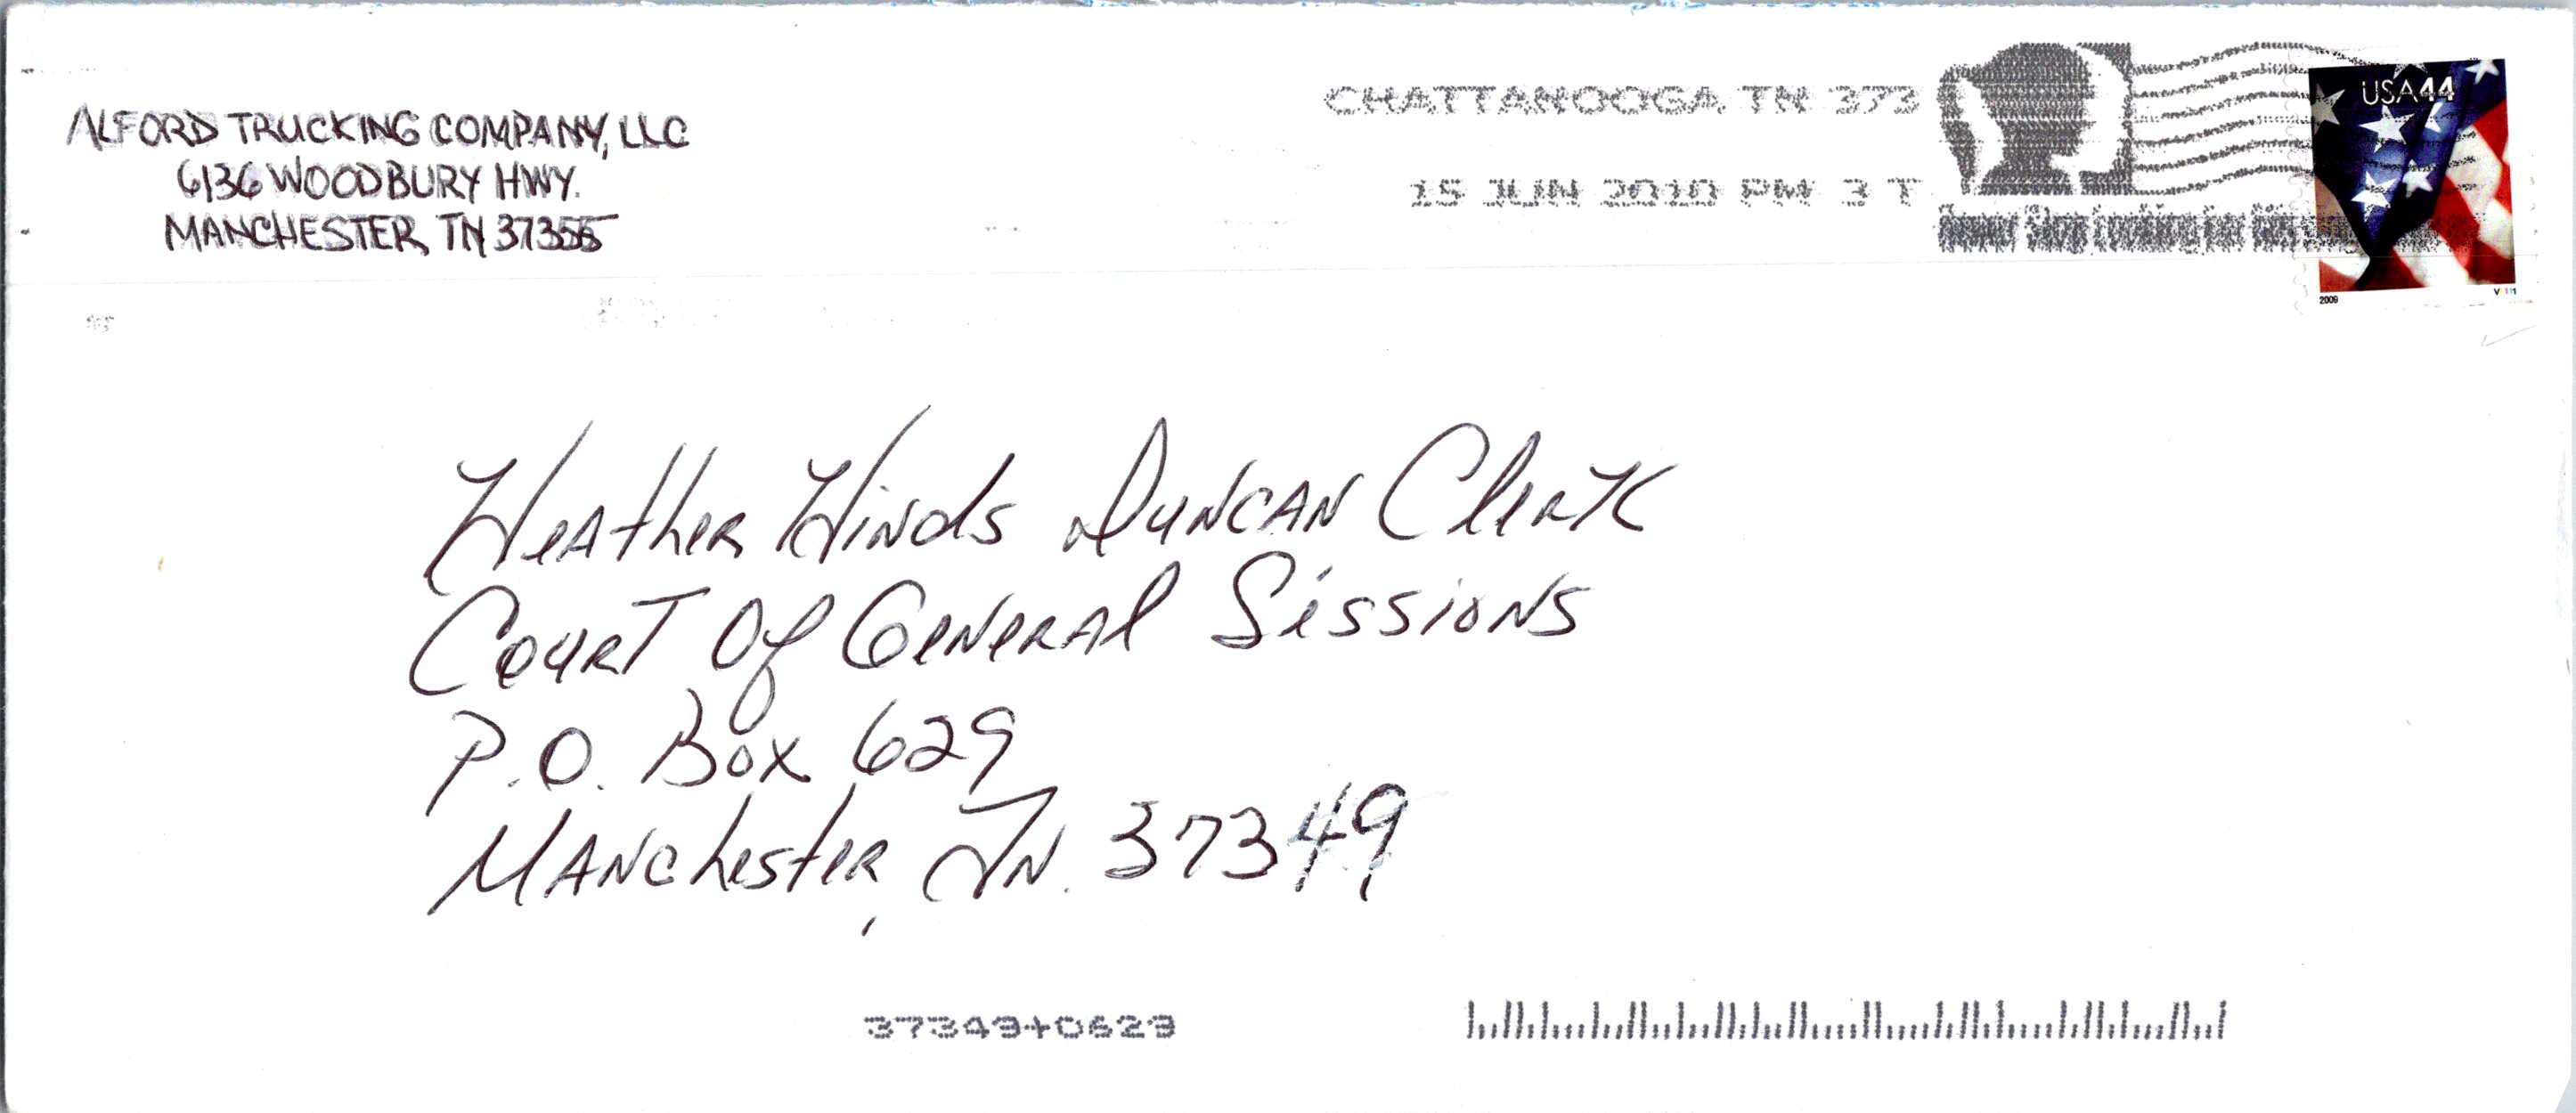 ALFORD TRUCKING COMPANY, LLC
6136 WOODBURY HWY.
MANCHESTER, TN 37355
CHATTANOOGA TN 373
15 JUN 2010 PM 3 T
USA44
2009
Heather Hinds Duncan Clerk
Court Of General Sessions
P.O. Box 629
Manchester, TN. 37349
37349+0629